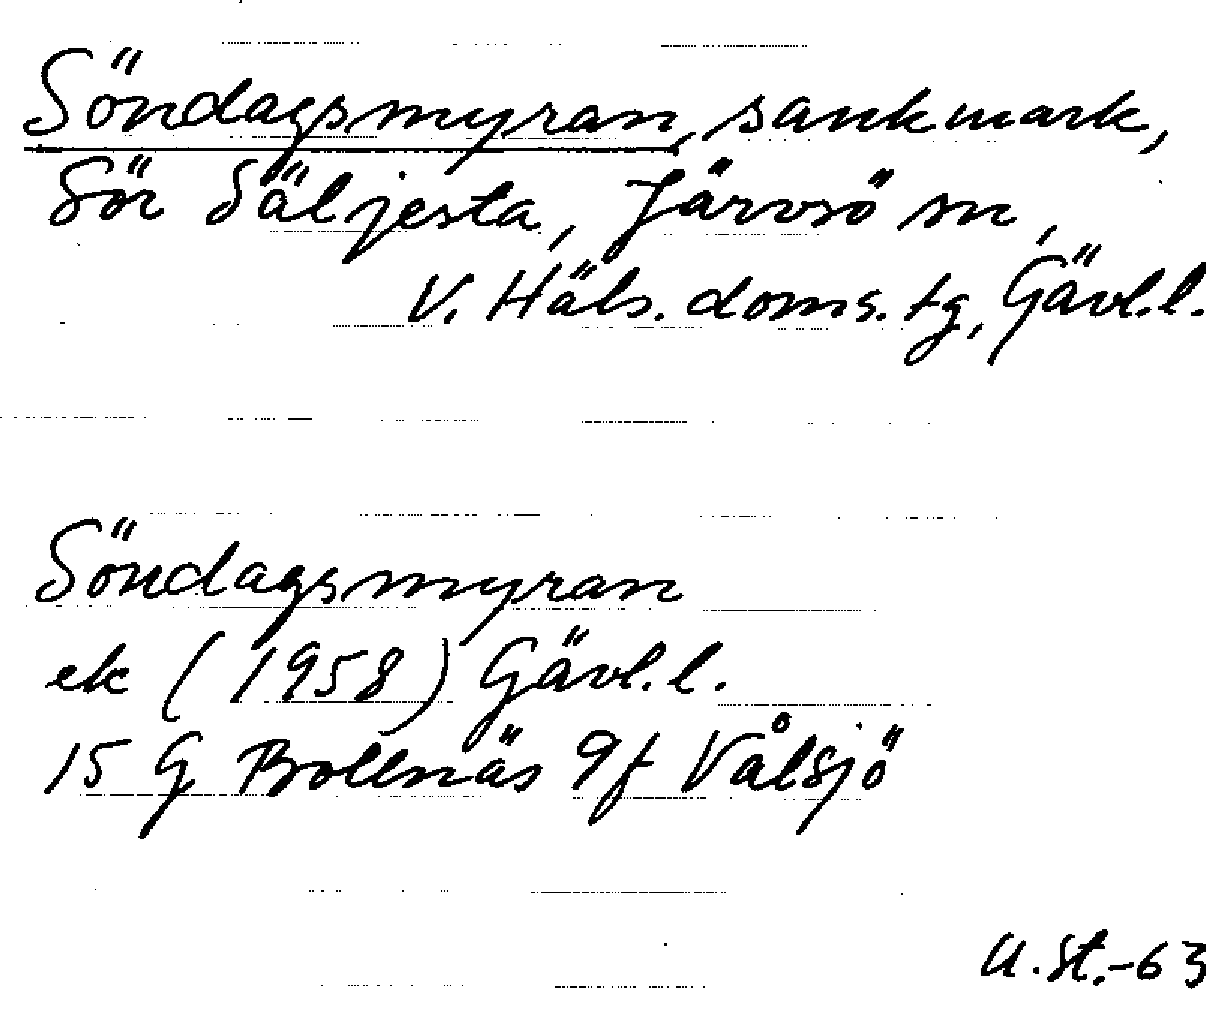 Söndagsmyran, sankmark,
Sör Säljesta, Järvsö sn,
V. Häls. doms. tg, Gävl.l.
Söndagsmyran
ek (1958) Gävl.l.
15 G Bollnäs 9f Vålsjö
U.St.-63